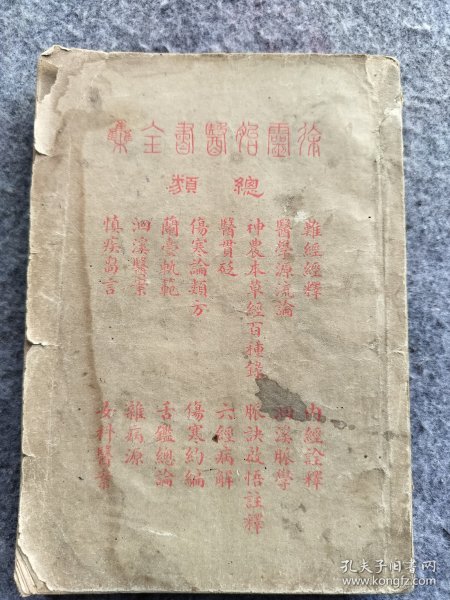 徐靈胎醫書全集
總類
難經經釋
醫學源流論
神農本草經百種錄
醫貫砭
傷寒論類方
蘭臺軌範
洄溪醫案
慎疾芻言
內經詮釋
洄溪脈學
脈訣啟悟註釋
六經病解
傷寒約編
舌鑑總論
雜病源
女科醫案
孔夫子旧书网
www.kongfz.com